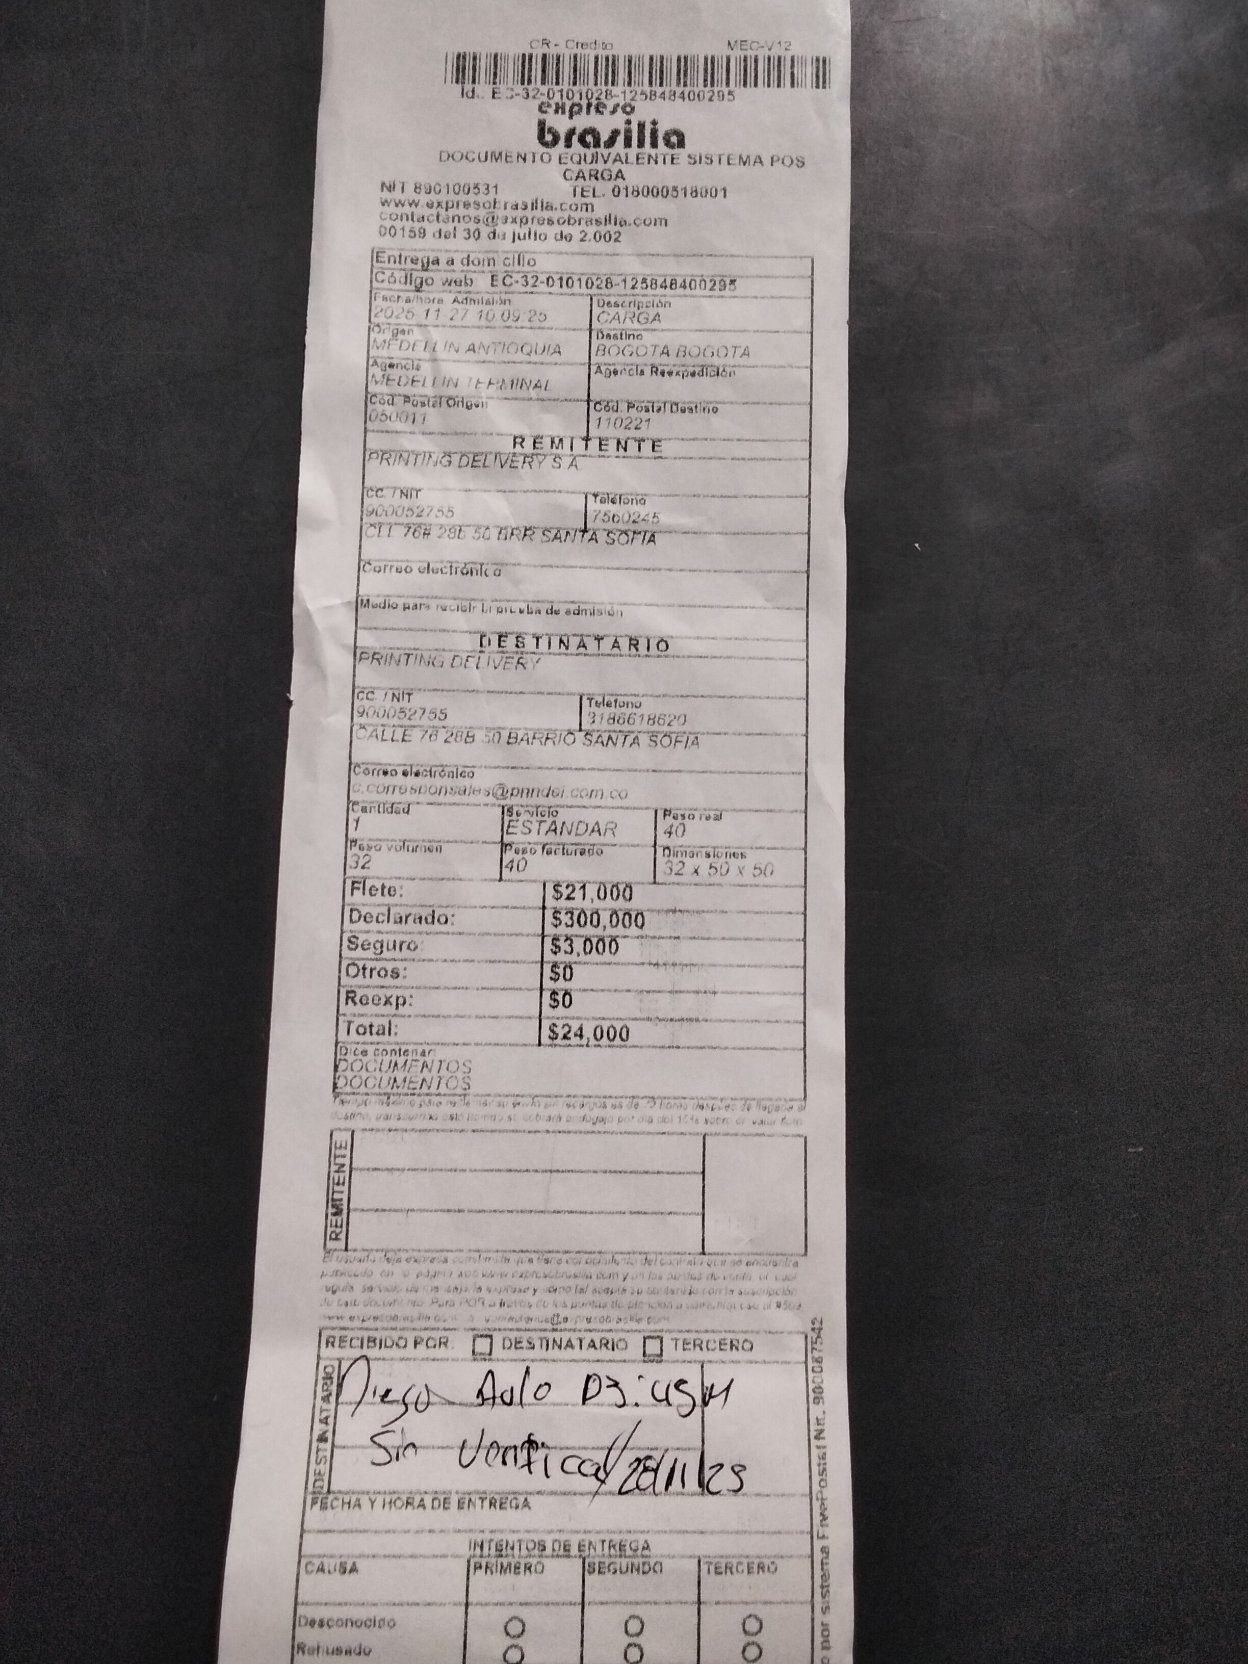 CR - Credito MEC-V12
Id.: EC-32-0101028-125848400295
expreso
brasilia
DOCUMENTO EQUIVALENTE SISTEMA POS
CARGA
NIT 890100531 TEL. 018000518001
www.expresobrasilia.com
contactenos@expresobrasilia.com
00159 del 30 de julio de 2.002
Entrega a domicilio
Código web: EC-32-0101028-125848400295
Fecha/hora Admisión Descripción
2025-11-27 10:09:25 CARGA
Origen Destino
MEDELLIN ANTIOQUIA BOGOTA BOGOTA
Agencia Agencia Reexpedición
MEDELLIN TERMINAL
Cód. Postal Origen Cód. Postal Destino
050011 110221
REMITENTE
PRINTING DELIVERY S.A
CC. / NIT Teléfono
900052755 7560245
CLL 76# 28b 50 BRR SANTA SOFIA
Correo electrónico
Medio para recibir la prueba de admisión
DESTINATARIO
PRINTING DELIVERY
CC. / NIT Teléfono
900052755 3186618620
CALLE 76 28B 50 BARRIO SANTA SOFIA
Correo electrónico
c.corresponsales@prindel.com.co
Cantidad Servicio Peso real
1 ESTANDAR 40
Peso volumen Peso facturado Dimensiones
32 40 32 x 50 x 50
Flete: $21,000
Declarado: $300,000
Seguro: $3,000
Otros: $0
Reexp: $0
Total: $24,000
Dice contener:
DOCUMENTOS
DOCUMENTOS
REMITENTE
RECIBIDO POR: DESTINATARIO TERCERO
DESTINATARIO
Diego
Sin Verificar/28/11/25
FECHA Y HORA DE ENTREGA
INTENTOS DE ENTREGA
CAUSA PRIMERO SEGUNDO TERCERO
Desconocido
Rehusado
o por sistema FivePostal Nit. 900087542